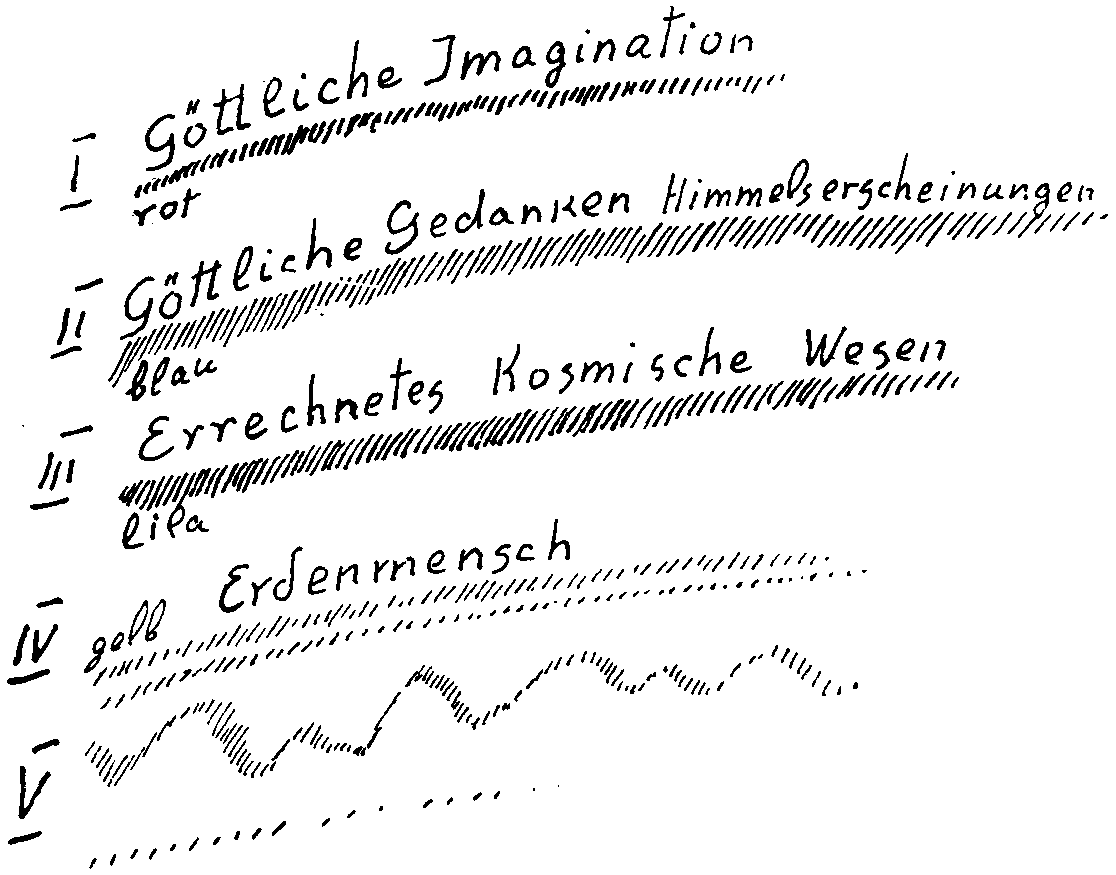 I Göttliche Imagination
rot
II Göttliche Gedanken Himmelserscheinungen
blau
III Errechnetes Kosmische Wesen
lila
IV gelb Erdenmensch
V